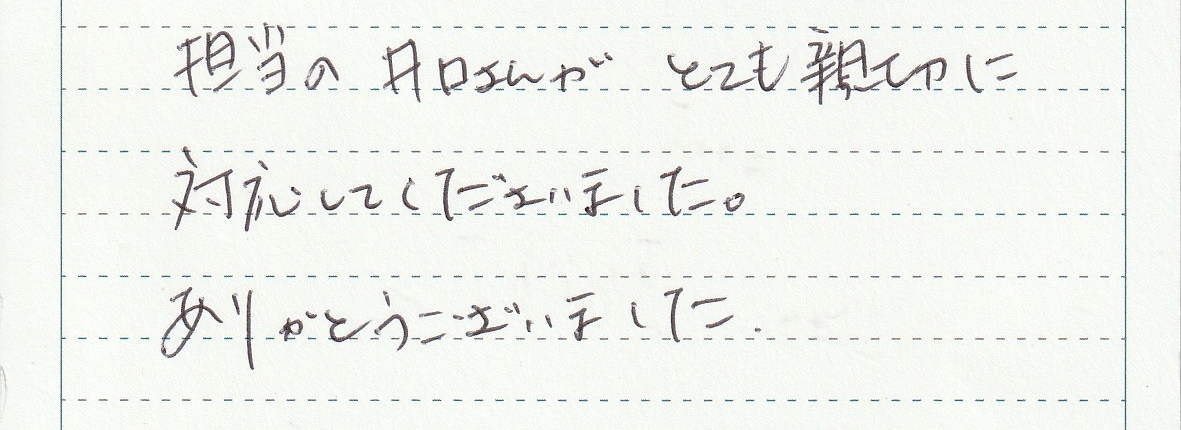 担当の井口さんがとても親切に
対応してくださいました。
ありがとうございました.